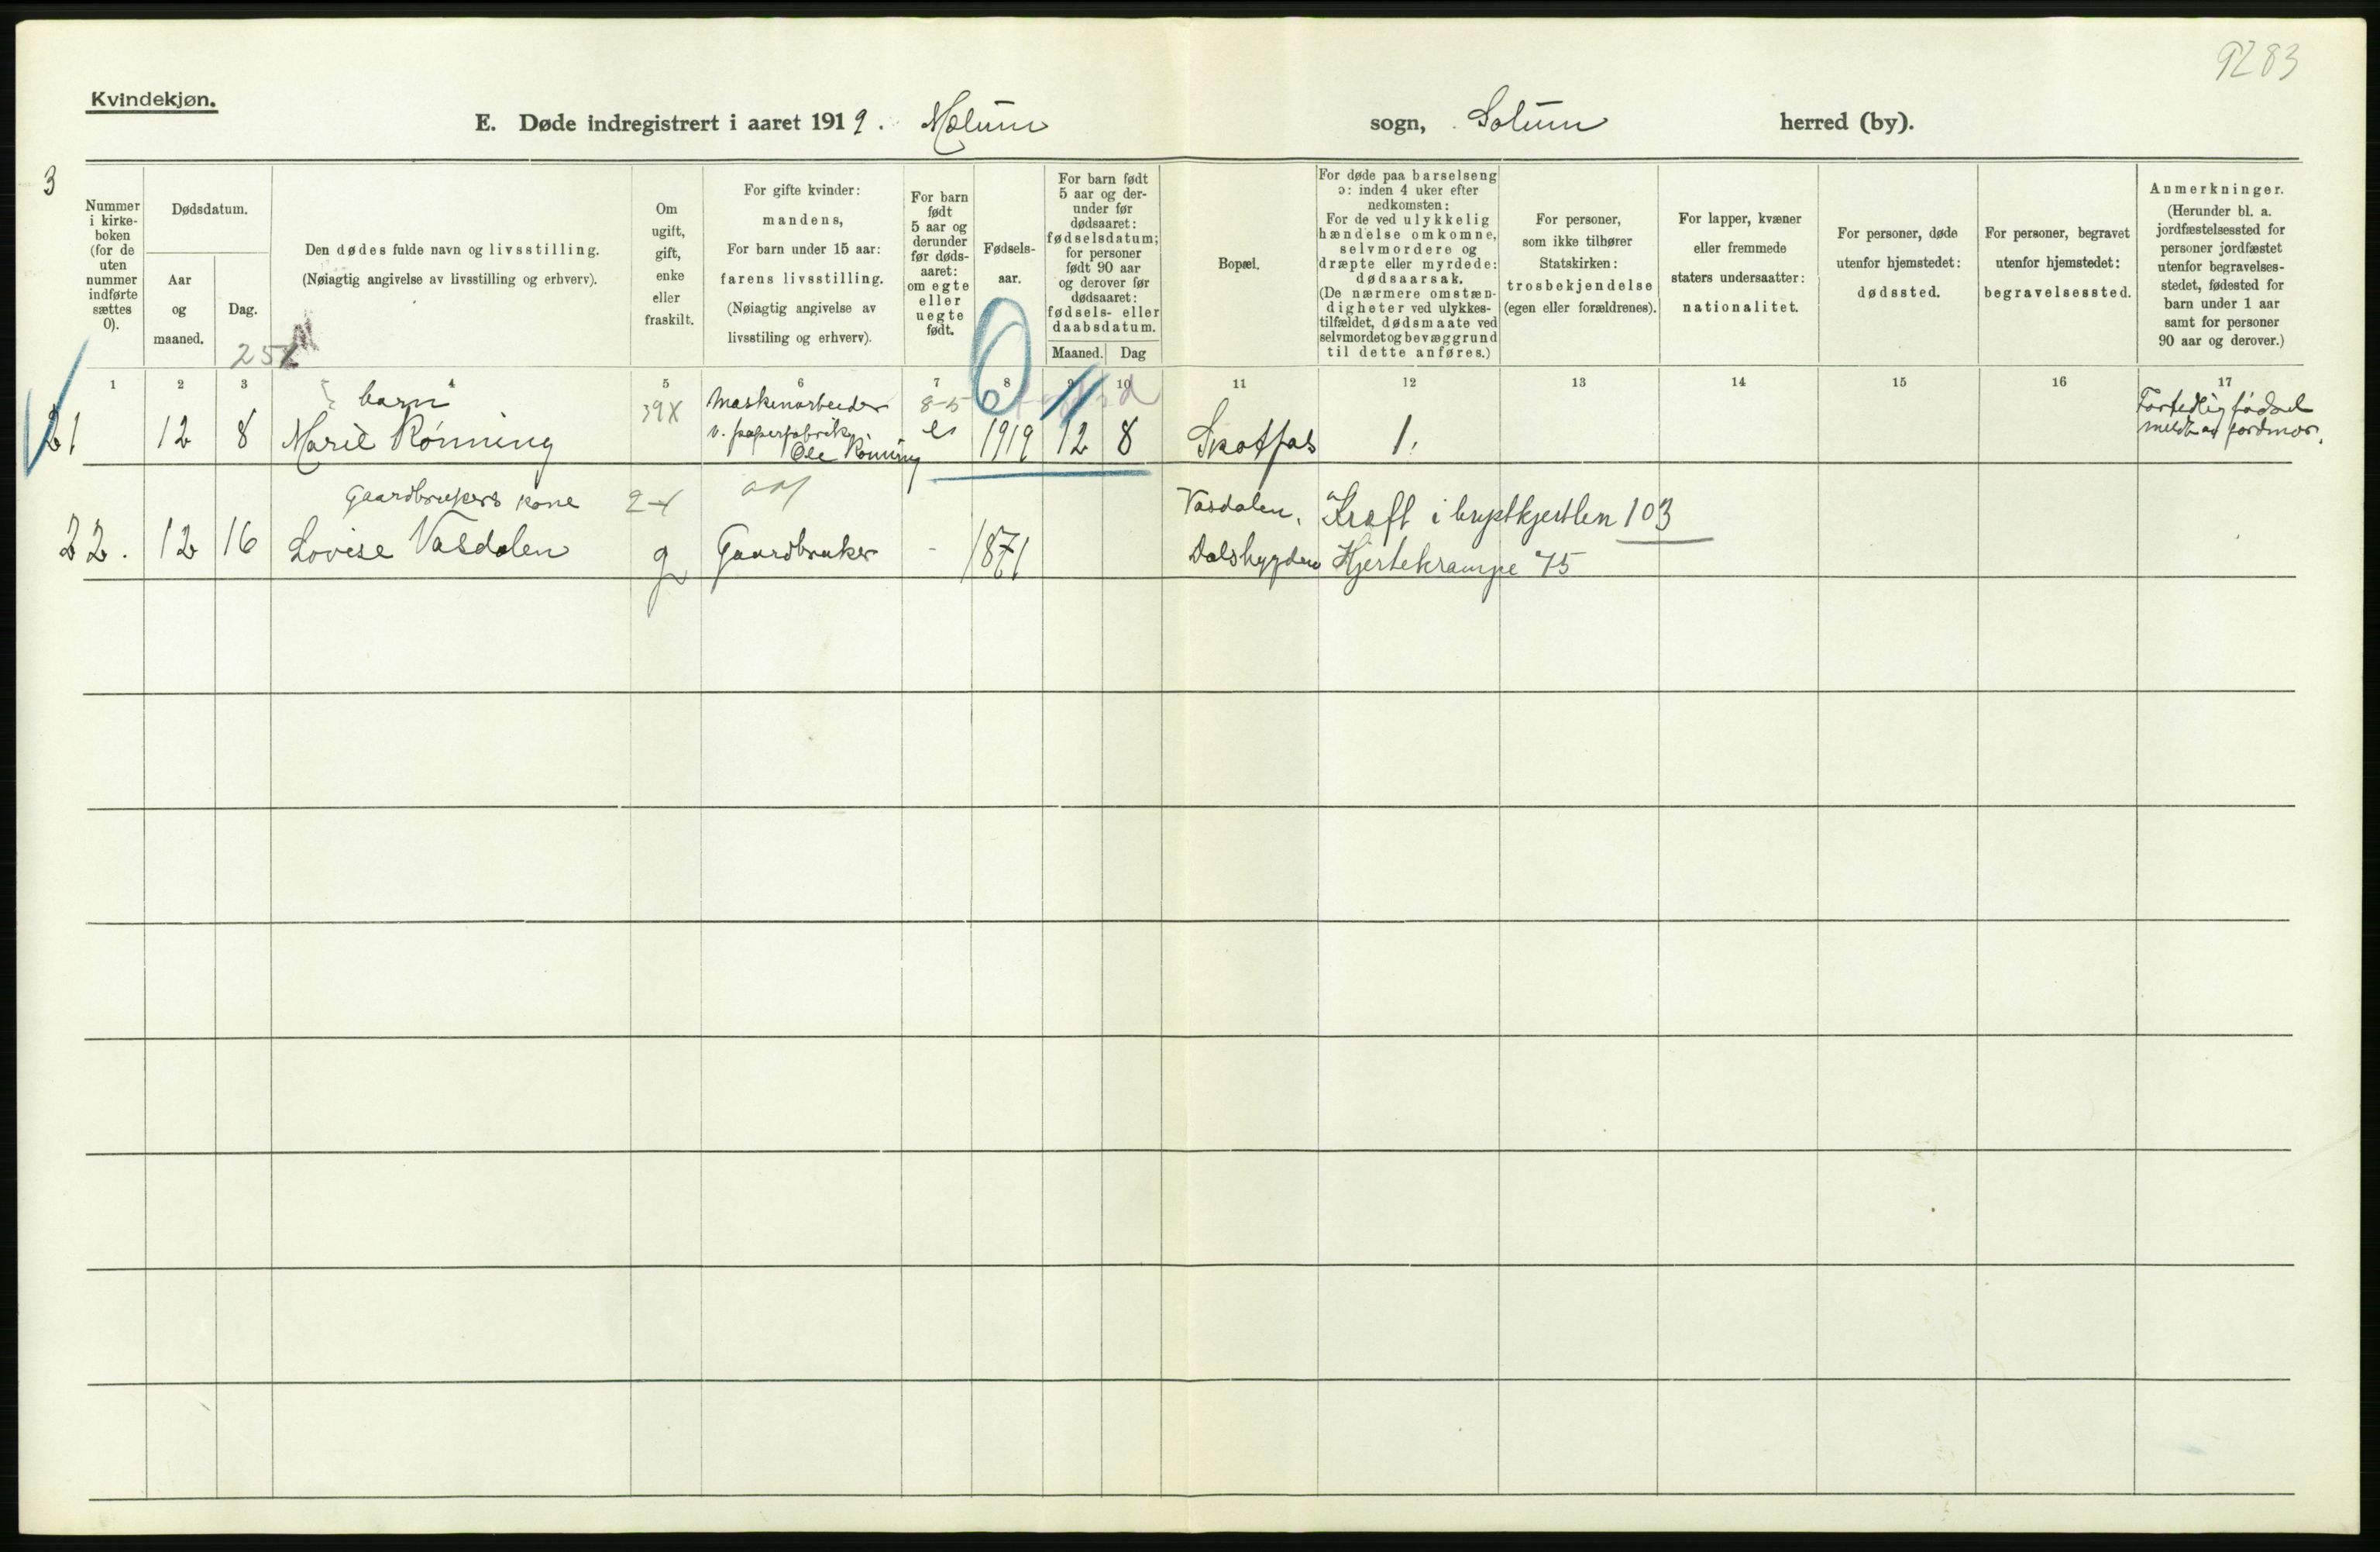 9283
Kvindekjøn.
E. Døde indregistrert i aaret 1919. Mælum sogn, Solum herred (by).
3
Nummer i kirke-boken (for de uten nummer indførte sættes 0).
Dødsdatum.
Aar og maaned.
Dag.
Den dødes fulde navn og livsstilling.
(Nøiagtig angivelse av livsstilling og erhverv).
Om ugift, gift, enke eller fraskilt.
For gifte kvinder: mandens,
For barn under 15 aar: farens livsstilling.
(Nøiagtig angivelse av livsstiling og erhverv).
For barn født 5 aar og derunder før døds-aaret: om egte eller uegte født.
Fødsels-aar.
For barn født 5 aar og der-under før dødsaaret: fødselsdatum; for personer født 90 aar og derover før dødsaaret: fødsels- eller daabsdatum.
Maaned. Dag
Bopæl.
For døde paa barselseng ɔ: inden 4 uker efter nedkomsten:
For de ved ulykkelig hændelse omkomne, selvmordere og dræpte eller myrdede: dødsaarsak.
(De nærmere omstæn-digheter ved ulykkes-tilfældet, dødsmaate ved selvmordet og bevæggrund til dette anføres.)
For personer, som ikke tilhører Statskirken: trosbekjendelse (egen eller forældrenes).
For lapper, kvæner eller fremmede staters undersaatter: nationalitet.
For personer, døde utenfor hjemstedet: dødssted.
For personer, begravet utenfor hjemstedet: begravelsessted.
Anmerkninger.
(Herunder bl. a. jordfæstelsessted for personer jordfæstet utenfor begravelses-stedet, fødested for barn under 1 aar samt for personer 90 aar og derover.)
1 2 3 4 5 6 7 8 9 10 11 12 13 14 15 16 17
barn 39X Maskenarbeider 8-5 Fortidlig fødsel
21 12 8 Marie Rönning v. papirfabrik Ole Rönning 1919 12 8 Skotfos 1. meldt av jordmor.
Gaardbrukers kone Vasdalen, Kræft i brystkjertlen 103
22. 12 16 Lovise Vasdalen g Gaardbruker - 1871 Valsbygden Hjertekrampe 75